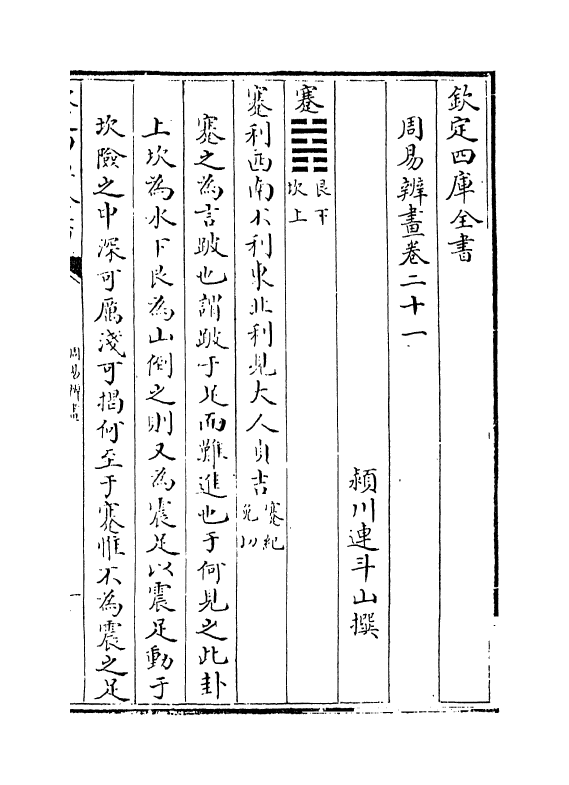 欽定四庫全書
周易辨畫卷二十一
潁川連斗山撰
蹇 艮下坎上
蹇利西南不利東北利見大人貞吉 蹇紀免川
蹇之為言跛也謂跛于足而難進也于何見之此卦
上坎為水下艮為山倒之則又為震足以震足動于
坎險之中深可厲淺可揭何至于蹇惟不為震之足
周易辨畫
一